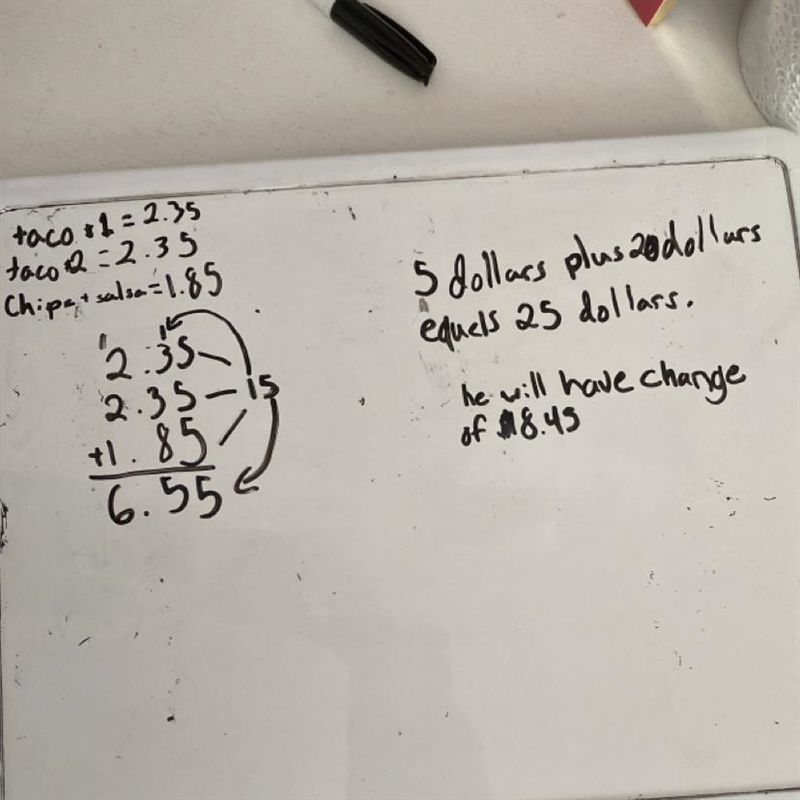 taco #1 = 2.35
taco #2 = 2.35
Chips + salsa = 1.85
1 1
2.35
2.35 15
+1.85
6.55
5 dollars plus 20 dollars
equels 25 dollars.
he will have change
of $18.45